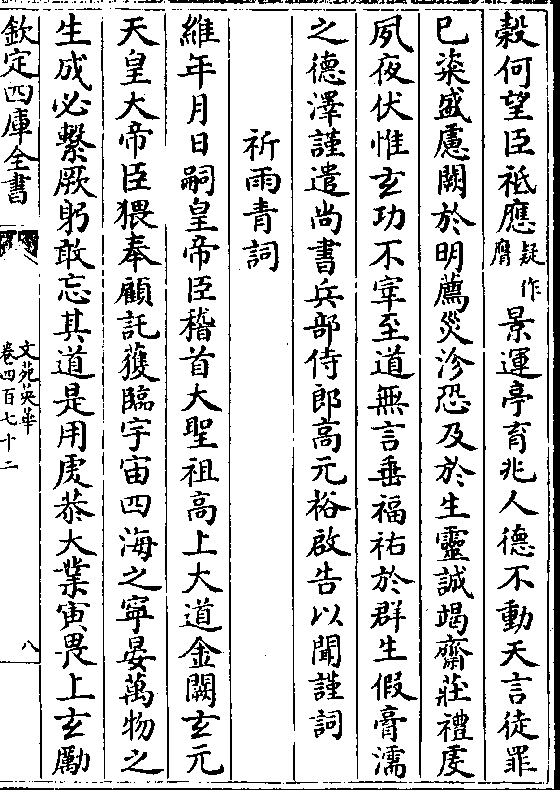 穀何望臣祗應疑作膺景運亭育兆人德不動天言徒罪
已粢盛慮闕於明薦災沴恐及於生靈誠竭齋莊禮虔
夙夜伏惟玄功不宰至道無言垂福祐於群生假膏濡
之德澤謹遣尚書兵部侍郎高元裕啟告以聞謹詞
祈雨青詞
維年月日嗣皇帝臣稽首大聖祖高上大道金闕玄元
天皇大帝臣猥奉顧託獲臨宇宙四海之寧晏萬物之
生成必繫厥躬敢忘其道是用虔恭大業寅畏上玄勵
欽定四庫全書
文苑英華
卷四百七十二
八